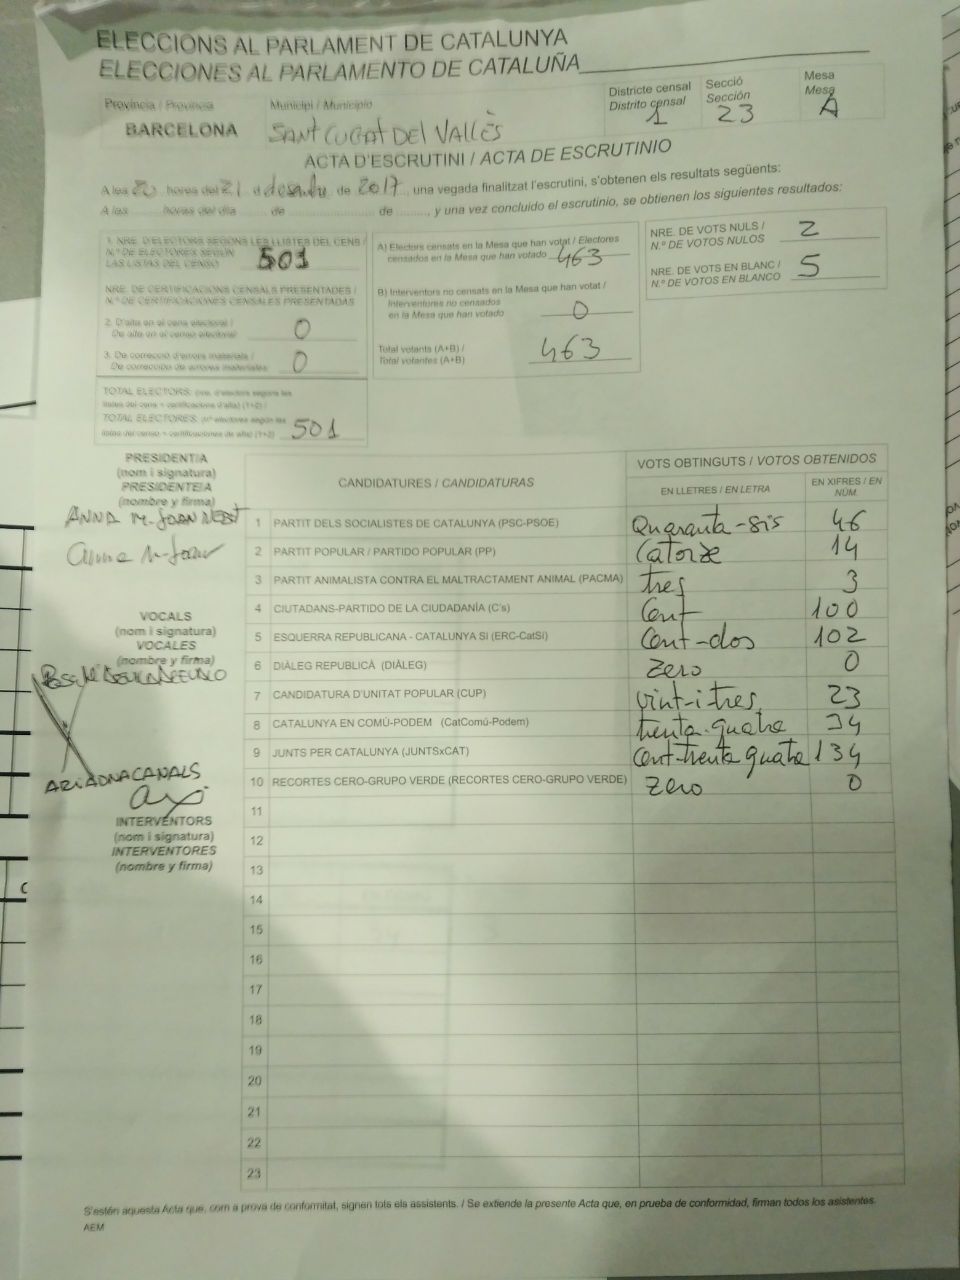 ELECCIONS AL PARLAMENT DE CATALUNYA
ELECCIONES AL PARLAMENTO DE CATALUÑA
Província / Provincia
BARCELONA
Municipi / Municipio
SANT CUGAT DEL VALLÈS
Districte censal
Distrito censal
1
Secció
Sección
23
Mesa
Mesa
A
ACTA D'ESCRUTINI / ACTA DE ESCRUTINIO
A les 20 hores del 21 d desembre de 2017, una vegada finalitzat l'escrutini, s'obtenen els resultats següents:
A las ........ horas del día ........ de ........ de ........, y una vez concluido el escrutinio, se obtienen los siguientes resultados:
1. NRE. D'ELECTORS SEGONS LES LLISTES DEL CENS /
N.º DE ELECTORES SEGÚN
LAS LISTAS DEL CENSO 501
NRE. DE CERTIFICACIONS CENSALS PRESENTADES /
N.º DE CERTIFICACIONES CENSALES PRESENTADAS
2. D'alta en el cens electoral /
De alta en el censo electoral 0
3. De correcció d'errors materials /
De corrección de errores materiales 0
TOTAL ELECTORS: (nre. d'electors segons les
llistes del cens + certificacions d'alta) (1+2) /
TOTAL ELECTORES: (nº electores según las
listas del censo + certificaciones de alta) (1+2) 501
A) Electors censats en la Mesa que han votat / Electores
censados en la Mesa que han votado 463
B) Interventors no censats en la Mesa que han votat /
Interventores no censados
en la Mesa que han votado 0
Total votants (A+B) /
Total votantes (A+B) 463
NRE. DE VOTS NULS /
N.º DE VOTOS NULOS 2
NRE. DE VOTS EN BLANC /
N.º DE VOTOS EN BLANCO 5
PRESIDENT/A
(nom i signatura)
PRESIDENTE/A
(nombre y firma)
ANNA M. JOAN
Anna M. Joan
VOCALS
(nom i signatura)
VOCALES
(nombre y firma)
ARIADNA CANALS
INTERVENTORS
(nom i signatura)
INTERVENTORES
(nombre y firma)
CANDIDATURES / CANDIDATURAS
VOTS OBTINGUTS / VOTOS OBTENIDOS
EN LLETRES / EN LETRA
EN XIFRES / EN NÚM.
1 PARTIT DELS SOCIALISTES DE CATALUNYA (PSC-PSOE) Quaranta-sis 46
2 PARTIT POPULAR / PARTIDO POPULAR (PP) Catorze 14
3 PARTIT ANIMALISTA CONTRA EL MALTRACTAMENT ANIMAL (PACMA) tres 3
4 CIUTADANS-PARTIDO DE LA CIUDADANÍA (C's) Cent 100
5 ESQUERRA REPUBLICANA - CATALUNYA SÍ (ERC-CatSí) Cent-dos 102
6 DIÀLEG REPUBLICÀ (DIÀLEG) Zero 0
7 CANDIDATURA D'UNITAT POPULAR (CUP) vint-i-tres 23
8 CATALUNYA EN COMÚ-PODEM (CatComú-Podem) trenta-quatre 34
9 JUNTS PER CATALUNYA (JUNTSxCAT) Cent-trenta quatre 134
10 RECORTES CERO-GRUPO VERDE (RECORTES CERO-GRUPO VERDE) Zero 0
11
12
13
14
15
16
17
18
19
20
21
22
23
S'estén aquesta Acta que, com a prova de conformitat, signen tots els assistents. / Se extiende la presente Acta que, en prueba de conformidad, firman todos los asistentes.
AEM